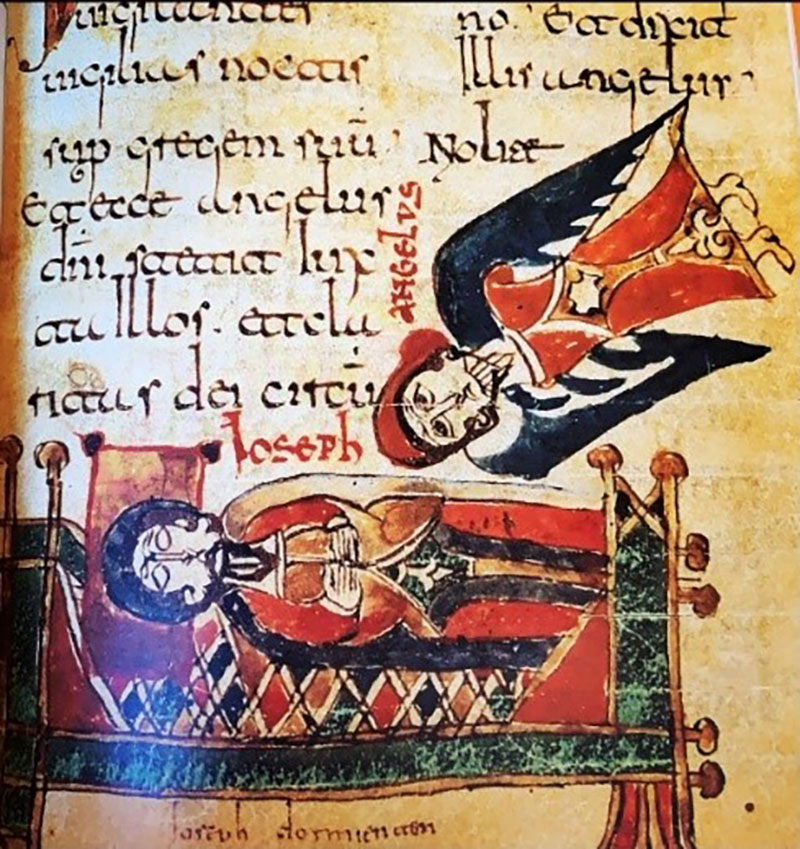 vigilantes
vigilias noctis
sup gregem suū
Et ecce angelus
dni stetit iux
ta illos. et cla
ritas dei circū
no. Et dixit
illis angelus
Nolite
angelvs
Ioseph
Ioseph dormientem